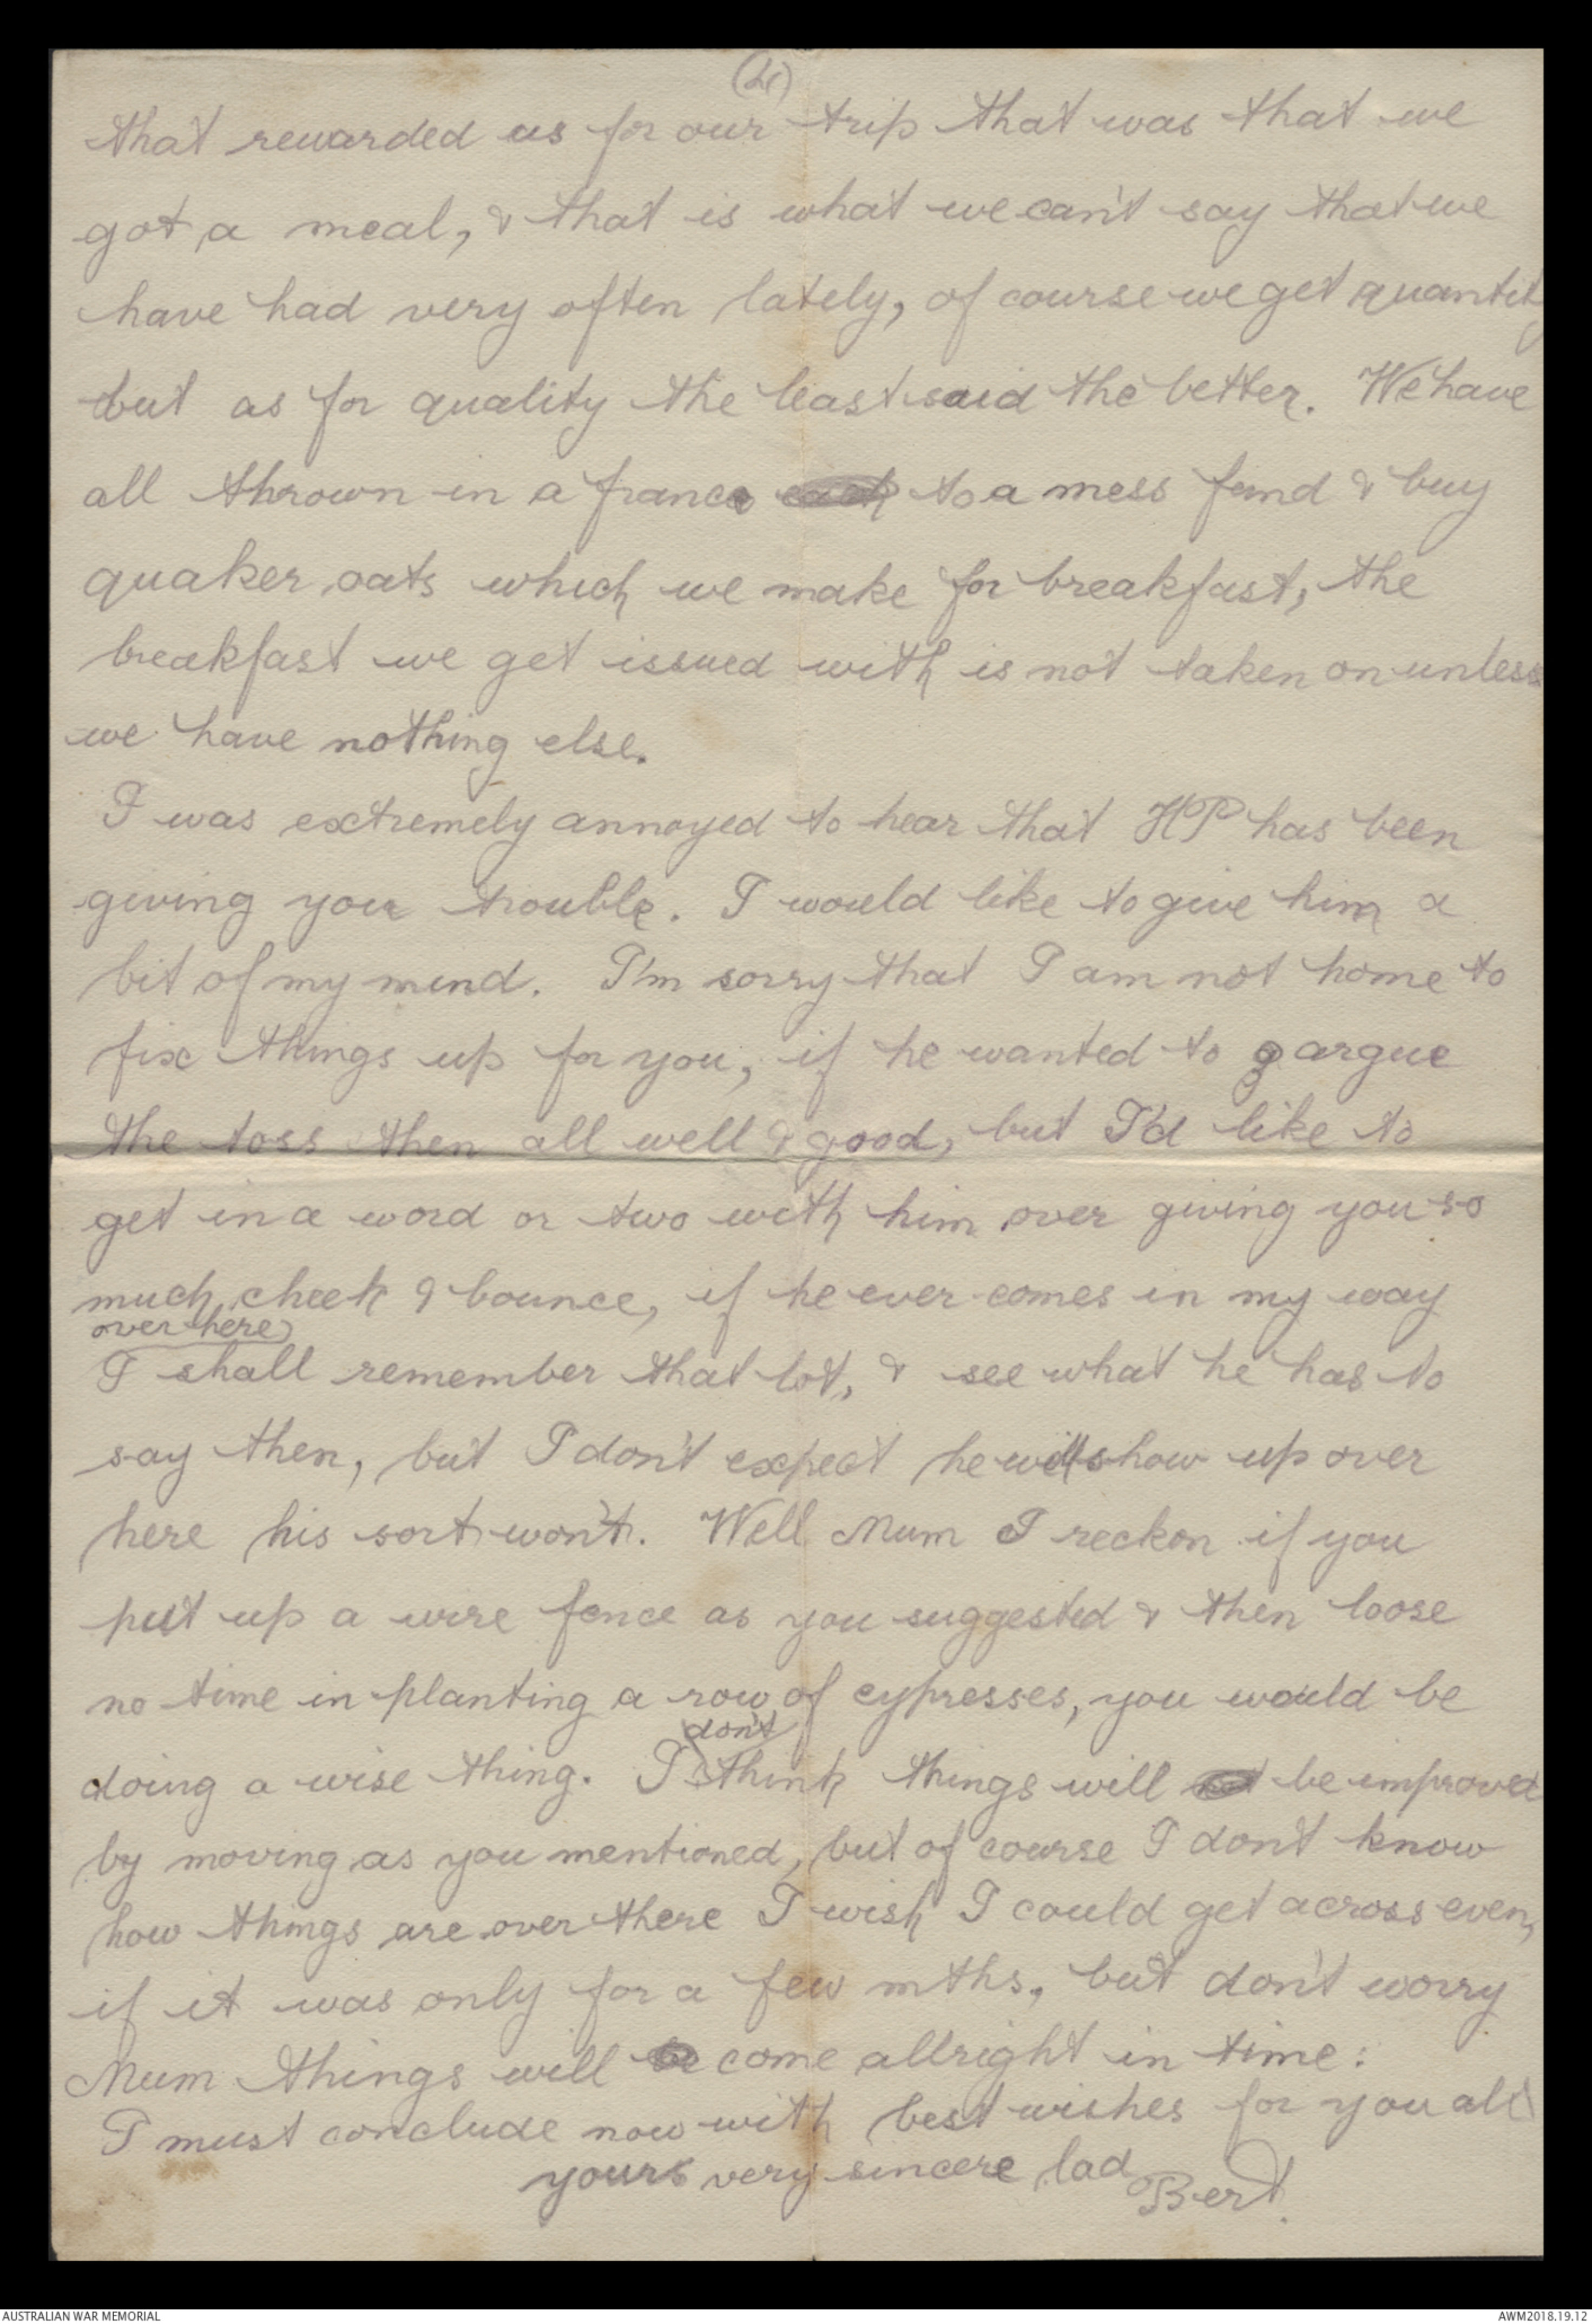 that rewarded us for our trip that was that we
got a meal, & that is what we can't say that we
have had very often lately, of course we get quantity
but as for quality the least said the better. We have
all thrown in a franc to a mess fund & buy
quaker oats which we make for breakfast, the
breakfast we get issued with is not taken on unless
we have nothing else.
I was extremely annoyed to hear that HP has been
giving you trouble. I would like to give him a
bit of my mind. I'm sorry that I am not home to
fix things up for you, if he wanted to argue
the toss then all well & good, but I'd like to
get in a word or two with him over giving you so
much cheek & bounce, if he ever comes in my way
over here
I shall remember that lot, & see what he has to
say then, but I don't expect he will show up over
here his sort won't. Well Mum I reckon if you
put up a wire fence as you suggested & then loose
no time in planting a row of cypresses, you would be
don't
doing a wise thing. I think things will be improved
by moving as you mentioned, but of course I don't know
how things are over there I wish I could get across even,
if it was only for a few mths, but don't worry
Mum things will come allright in time:
I must conclude now with best wishes for you all
yours very sincere lad
Bert.
AUSTRALIAN WAR MEMORIAL AWM2018.19.12